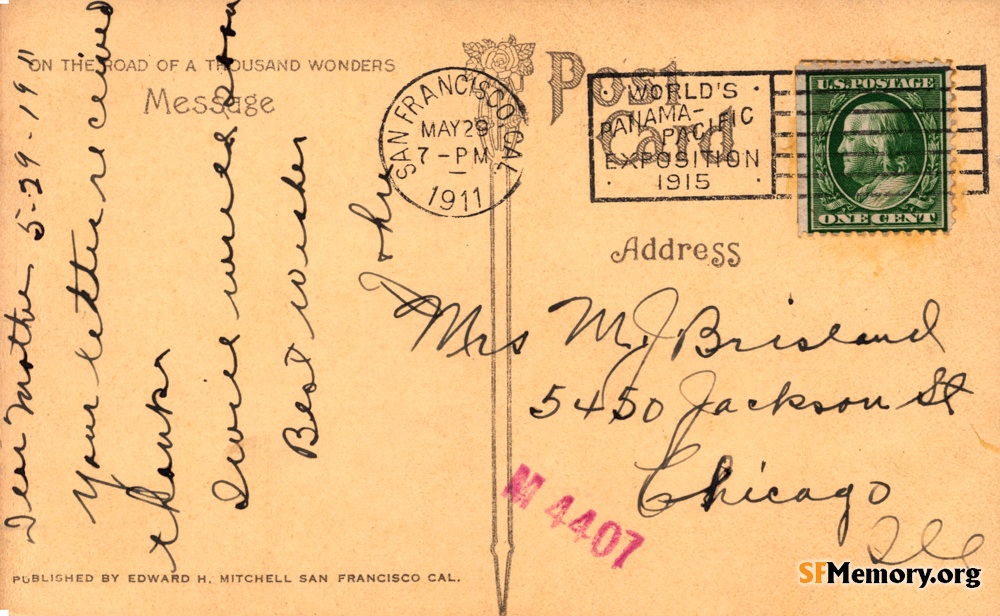 ON THE ROAD OF A THOUSAND WONDERS
Message
Post
Card
SAN FRANCISCO, CAL
MAY 29
7-PM
1911
WORLD'S
PANAMA-
PACIFIC
EXPOSITION
1915
U.S. POSTAGE
ONE CENT
Dear Mother 5-29-19"
Your letter received
thanks
I will write soon
Best wishes
John
Address
Mrs M. J. Brisland
5450 Jackson St
Chicago
Ill
M 4407
PUBLISHED BY EDWARD H. MITCHELL SAN FRANCISCO CAL.
SFMemory.org